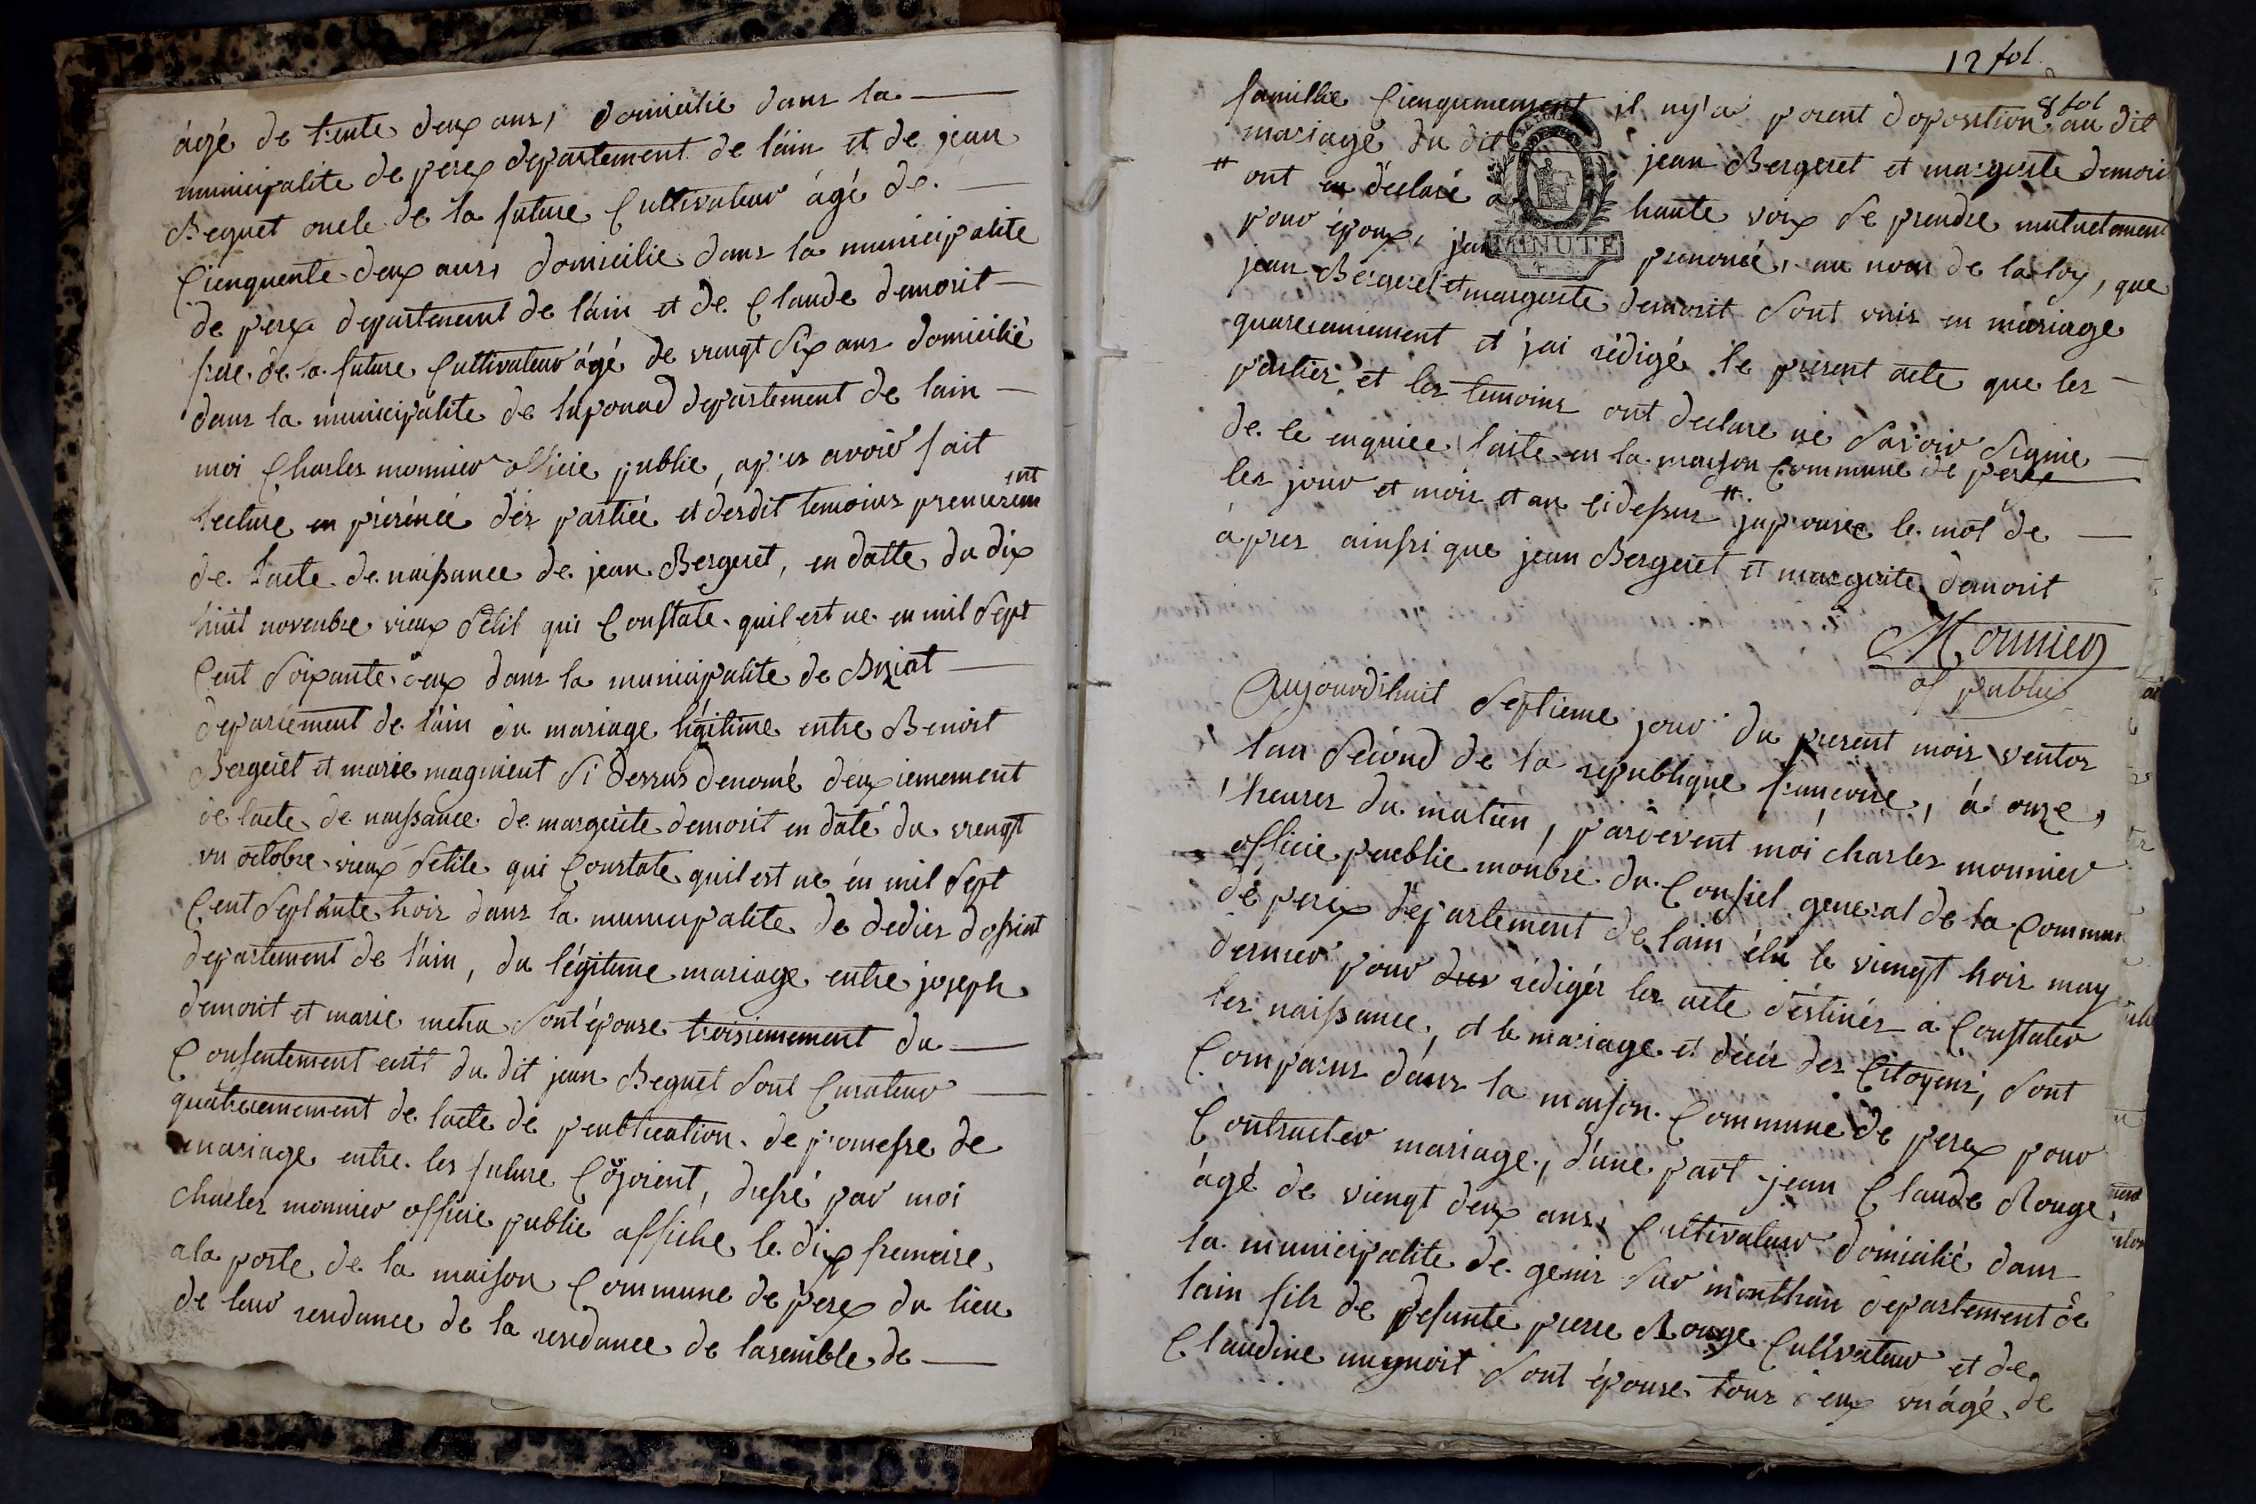 âgé de trente deux ans, domicilié dans la
municipalite de perex departement de l'ain et de jean
Beguet oncle de la future Cultivateur âgé de
Cienquente deux ans, domicilie dans la municipalite
de perex departement de l'ain et de Claude demorit
frere de la future Cultivateur âgé de viengt six ans domicilié
dans la municipalite de laponad departement de lain
moi Charles monnier officie publie, apres avoir fait
lecture en présénce dés partiée et desdit temoins premierem
ent
de lacte de naissance de jean Bergeret, en datte du dix
huit novenbre vieux sétil qui Constate quil est ne en mil sept
Cent soixante deux dans la municipalite de Biziat
departement de l'ain du mariage légitime entre Benoit
Bergeret et marie magnient si dessus denomé deuxiemement
de lacte de naissance de margerite demorit en daté du viengt
un octobre vieux sétile qui Constate quil est né en mil sept
Cent septante trois dans la municipalite de dedier dossiat
departement de l'ain, du légitime mariage entre joseph
demorit et marie metra sont épouse troisiemement du
Consentement ecrit du dit jean Beguet sont Curateur
quatriemement de lacte de peublication de promesse de
mariage entre les future Cojoient, dressé par moi
charles monnier officie publie affiche le dix frimaire
a la porte de la maison Commune de perex du lieu
de leur rendance de la residance de lasemble de
12 fol
8 fol
famille Cienquemement il ny'a point doposition au dit
mariage du dit jean Bergeret et margerite demori
# ont en déclaré a haute voix se prendre mutuelement
pour époux, jai prenoncé, au nom de la loy, que
MINUTE
jean Bergeret et margerite demorit sont unis en mariage
quarecaniement et j'ai rédigé le present acte que les
pártier et les temoins ont declare ne savoir signie
de le enquiee faite en la maison Commune de perex
les jour et mois et an cidessus # japrouve le mot de
âpres ainssi que jean Bergeret et margerite demorit
Monnier
of publie
Aujourdhuit septieme jour du present mois ventos
lan second de la republique francoise, à onze
heures du matien, pardevent moi charles monnier
officie peublie monbre du Consiel general de la Commun
dé perex département de lain élu le viengt trois may
dernier pour rédigér les acte déstinés a Constater
les naissance, et le mariage et décés des Citoyens, sont
Comparus dans la maison Commune de perex pour
Contracter mariage, d'une part jean Claude Rouge
âgé de viengt deux ans, Cultivateur domicilié dans
la municipalite de genis sur monthon departement de
lain fils de defunte pierre Rouge Cultivateur et de
Claudine sont épouse tous deux